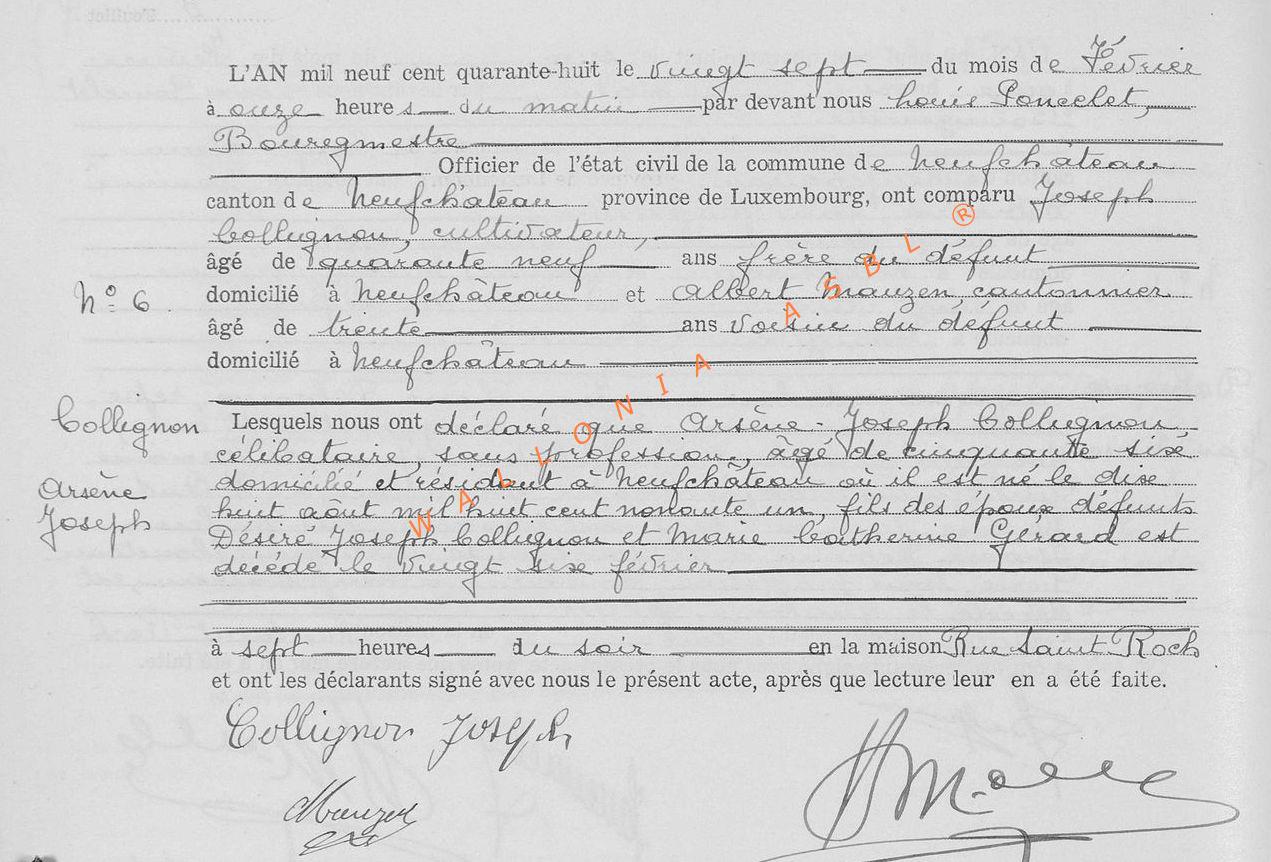 L'AN mil neuf cent quarante-huit le vingt sept du mois de Février
à onze heures du matin par devant nous Louis Poncelet,
Bourgmestre
Officier de l'état civil de la commune de Neufchâteau
canton de Neufchâteau province de Luxembourg, ont comparu Joseph
Collignon, cultivateur,
âgé de quarante neuf ans frère du défunt
domicilié à Neufchâteau et Albert Mauzen, cantonnier
N° 6
âgé de trente ans voisin du défunt
domicilié à Neufchâteau
Collignon
Arsène
Joseph
Lesquels nous ont déclaré que Arsène - Joseph Collignon,
célibataire, sans profession, âgé de cinquante six
domicilié et résidant à Neufchâteau où il est né le dix
huit août mil huit cent nonante un, fils des époux défunts
Désiré Joseph Collignon et Marie Catherine Gérard est
décédé le vingt six février
à sept heures du soir en la maison Rue Saint Roch
et ont les déclarants signé avec nous le présent acte, après que lecture leur en a été faite.
Collignon Joseph
Mauzen
WALLONIA ASBL ®